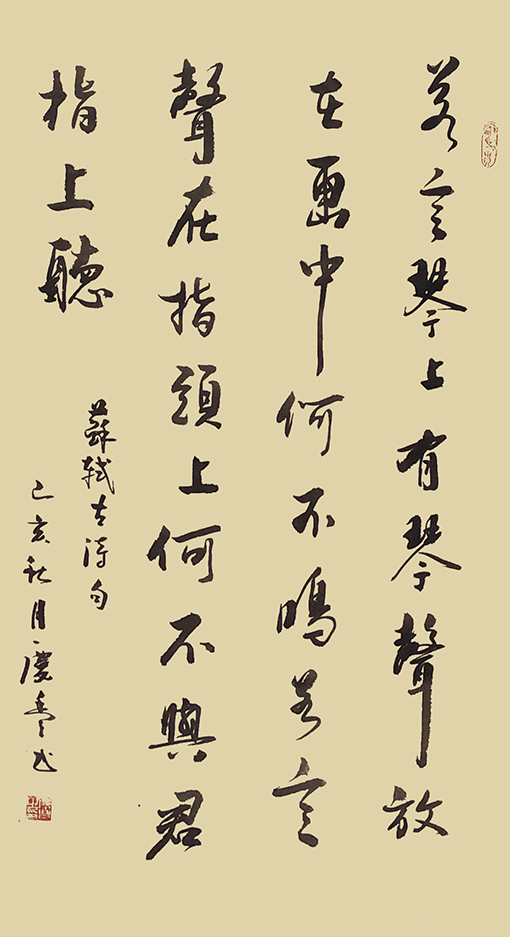 若言琴上有琴聲放
在匣中何不鳴若言
聲在指頭上何不與君
指上聽
蘇軾古詩句
己亥秋月慶书